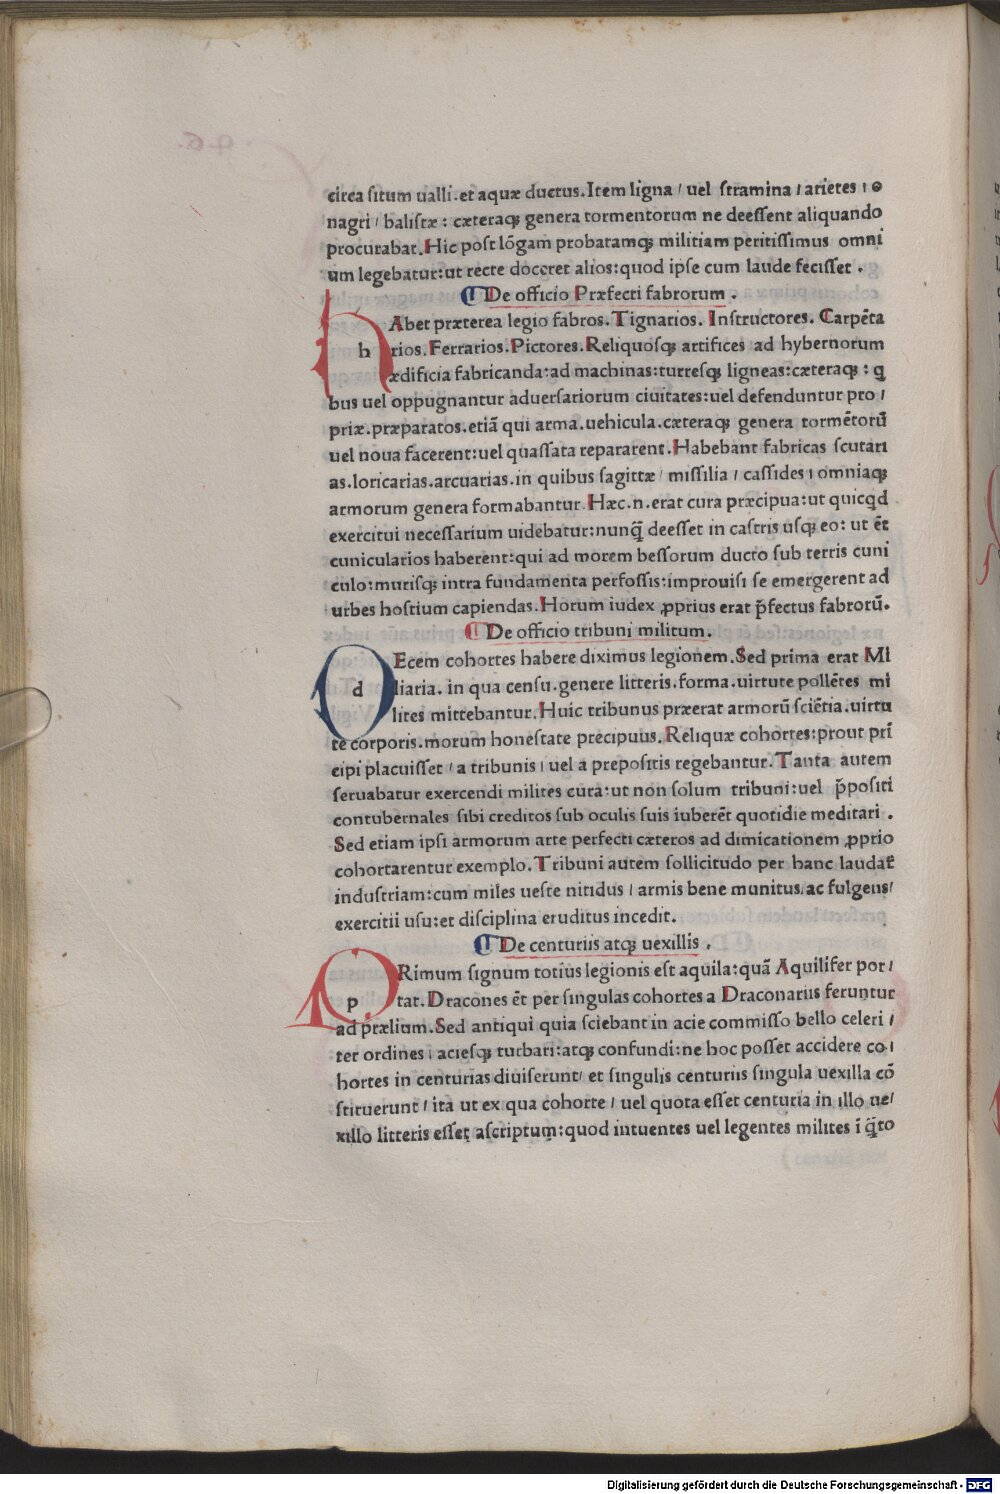 circa situm ualli.et aquæ ductus.Item ligna/uel stramina/arietes/o
nagri/balistæ: cæteraqꝫ genera tormentorum ne deessent aliquando
procurabat.Hic post lōgam probatamqꝫ militiam peritissimus omni
um legebatur:ut recte doceret alios:quod ipse cum laude fecisset.
¶ De officio Præfecti fabrorum.
HAbet præterea legio fabros.Tignarios.Instructores.Carpēta
h rios.Ferrarios.Pictores.Reliquosqꝫ artifices ad hybernorum
ædificia fabricanda:ad machinas:turresqꝫ ligneas:cæteraqꝫ:q
bus uel oppugnantur aduersariorum ciuitates:uel defenduntur pro/
priæ.præparatos.etiā qui arma.uehicula.cæteraqꝫ genera tormētorū
uel noua facerent:uel quassata repararent.Habebant fabricas scutari
as.loricarias.arcuarias.in quibus sagittæ/missilia/cassides/omniaqꝫ
armorum genera formabantur.Hæc.n.erat cura præcipua:ut quicq̄d
exercitui necessarium uidebatur:nunq̄ deesset in castris usqꝫ eo: ut ēt
cunicularios haberent:qui ad morem bessorum ducto sub terris cuni
culo:murisqꝫ intra fundamenta perfossis:improuisi se emergerent ad
urbes hostium capiendas.Horum iudex ꝓprius erat p̄fectus fabrorū.
¶ De officio tribuni militum.
DEcem cohortes habere diximus legionem.Sed prima erat Mi
d liaria.in qua censu.genere litteris.forma.uirtute pollētes mi
lites mittebantur.Huic tribunus præerat armorū sciētia.uirtu
te corporis.morum honestate precipuus.Reliquæ cohortes:prout prī
cipi placuisset/a tribunis/uel a prepositis regebantur.Tanta autem
seruabatur exercendi milites cura:ut non solum tribuni:uel p̄positi
contubernales sibi creditos sub oculis suis iuberēt quotidie meditari.
Sed etiam ipsi armorum arte perfecti cæteros ad dimicationem ꝓprio
cohortarentur exemplo.Tribuni autem sollicitudo per hanc laudat̄
industriam:cum miles ueste nitidus/armis bene munitus.ac fulgens/
exercitii usu:et disciplina eruditus incedit.
¶ De centuriis atqꝫ uexillis.
PRimum signum totius legionis est aquila:quā Aquilifer por/
p tat.Dracones ēt per singulas cohortes a Draconariis feruntur
ad prælium.Sed antiqui quia sciebant in acie commisso bello celeri/
ter ordines/aciesqꝫ turbari:atqꝫ confundi:ne hoc posset accidere co/
hortes in centurias diuiserunt/et singulis centuriis singula uexilla cō
stituerunt/ita ut ex qua cohorte/uel quota esset centuria in illo ue/
xillo litteris esset ascriptum:quod intuentes uel legentes milites ī q̄to
Digitalisierung gefördert durch die Deutsche Forschungsgemeinschaft - DFG